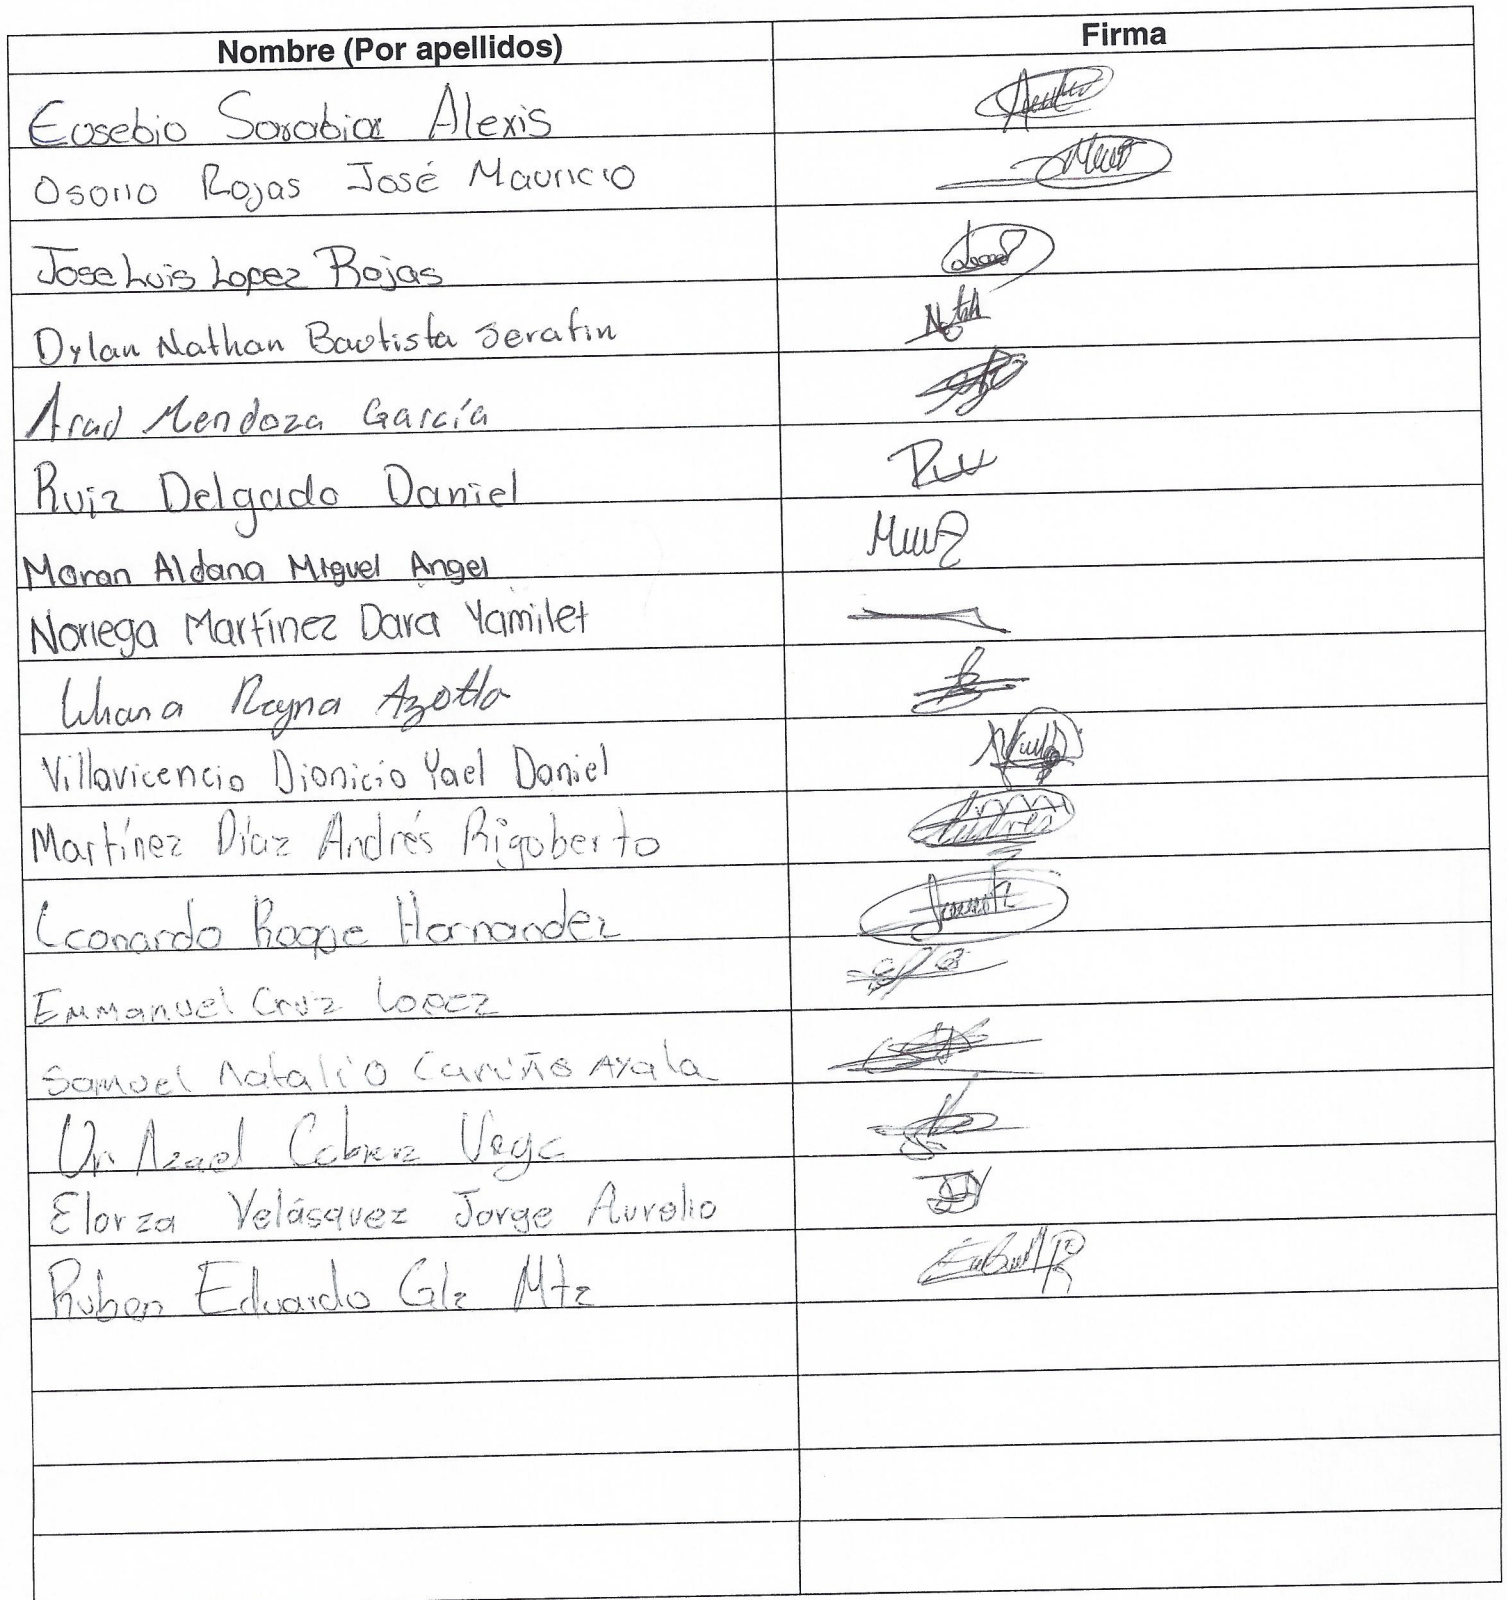 Nombre (Por apellidos) Firma
Eusebio Sarabia Alexis
Osorio Rojas José Mauricio
Jose Luis Lopez Rojas
Dylan Nathan Bautista Serafin
Arad Mendoza García
Ruiz Delgado Daniel
Moran Aldana Miguel Angel
Noriega Martínez Dara Yamilet
Reyna
Villavicencio Dionicio Yael Daniel
Martínez Díaz Andrés Rigoberto
Leonardo Roque Hernandez
Emmanuel Cruz Lopez
Samuel Natalio Cariño Ayala
Azael Cabrera Vega
Elorza Velásquez Jorge Aurelio
Ruben Eduardo Glz Mtz